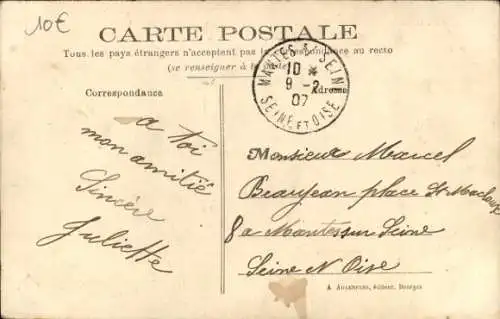 10€
CARTE POSTALE
Tous les pays étrangers n'acceptent pas la correspondance au recto
(se renseigner à la
MANTES S. SEINE
10 *
9 - 2
07
SEINE ET OISE
Correspondance
Adresse
a toi
mon amitié
Sincère
Juliette
Monsieur Marcel
Beaujean place St Maclou
8 a Mantes sur Seine
Seine et Oise
A. AUXENFANS, éditeur, Bourges